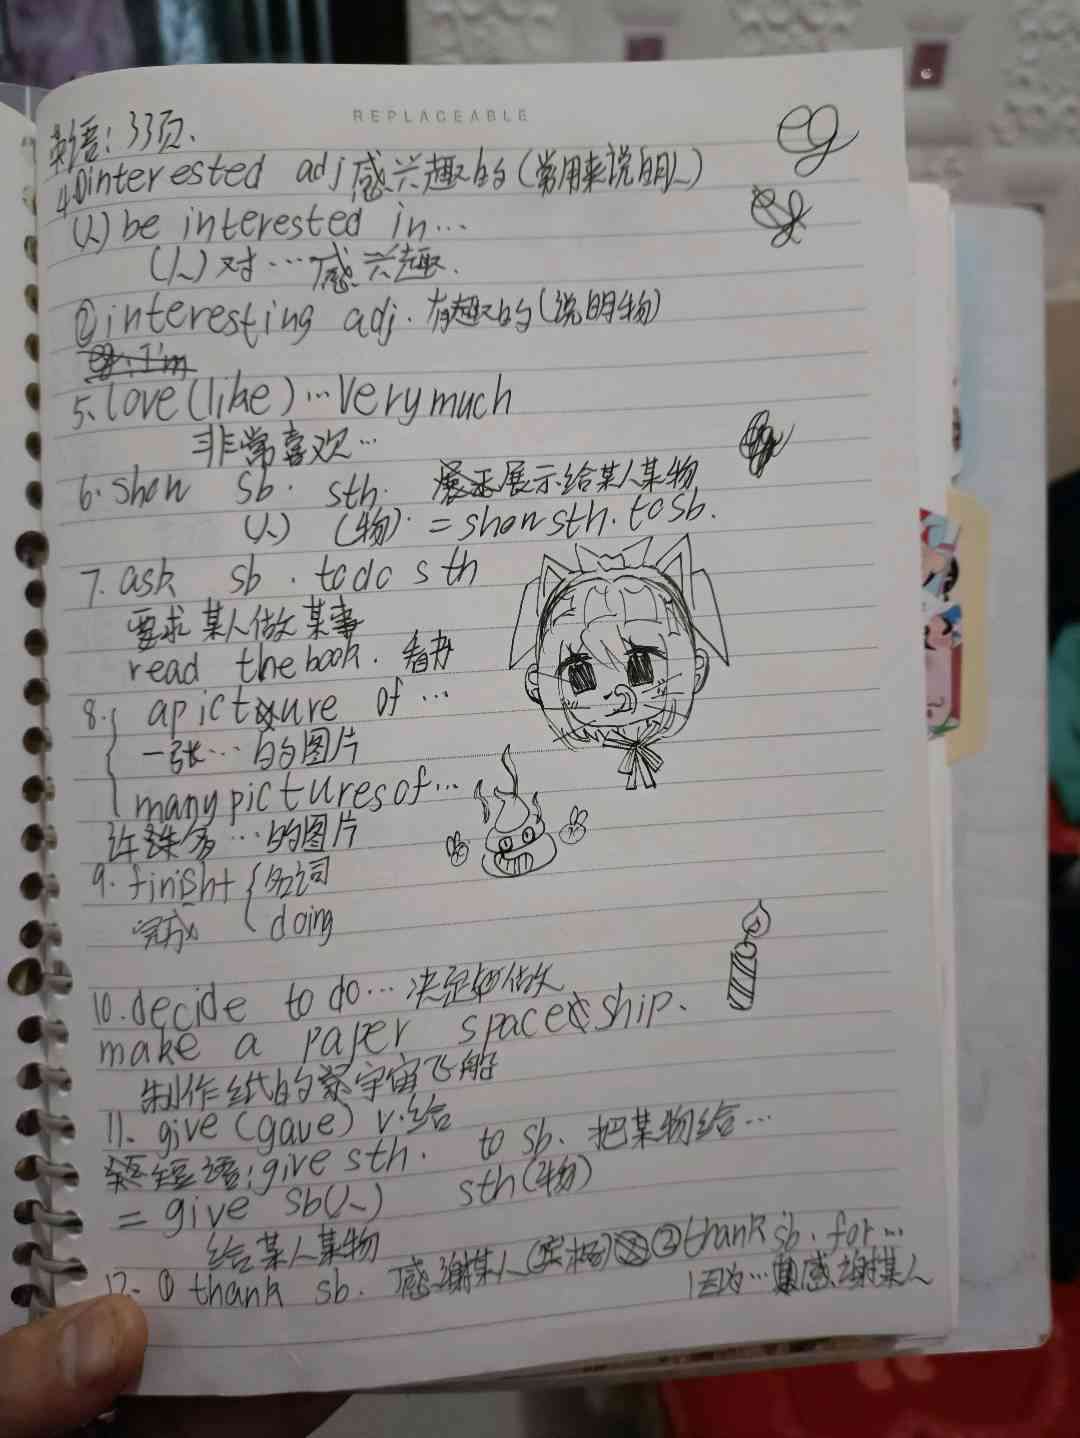 REPLACEABLE
英语:33页.
eg
4.①interested adj感兴趣的(常用来说明人)
(人)be interested in…
(人)对…感兴趣.
②interesting adj.有趣的(说明物)
eg:I'm
5.love(like)…Very much
非常喜欢…
6.show sb. sth. 展示给某人某物
(人) (物). =show sth.to sb.
7.ask sb.to do sth
要求某人做某事
read the book. 看书
8.a picture of …
一张…的图片
many pictures of…
许多…的图片
9.finish+{名词
完成 doing
10.decide to do…决定做
make a paper space ship.
制作纸的宇宙飞船
11.give(gave) v.给
短语:give sth. to sb.把某物给…
=give sb(人) sth(物)
给某人某物
12.①thank sb.感谢某人(宾格)②thank sb.for…
因为…感谢某人